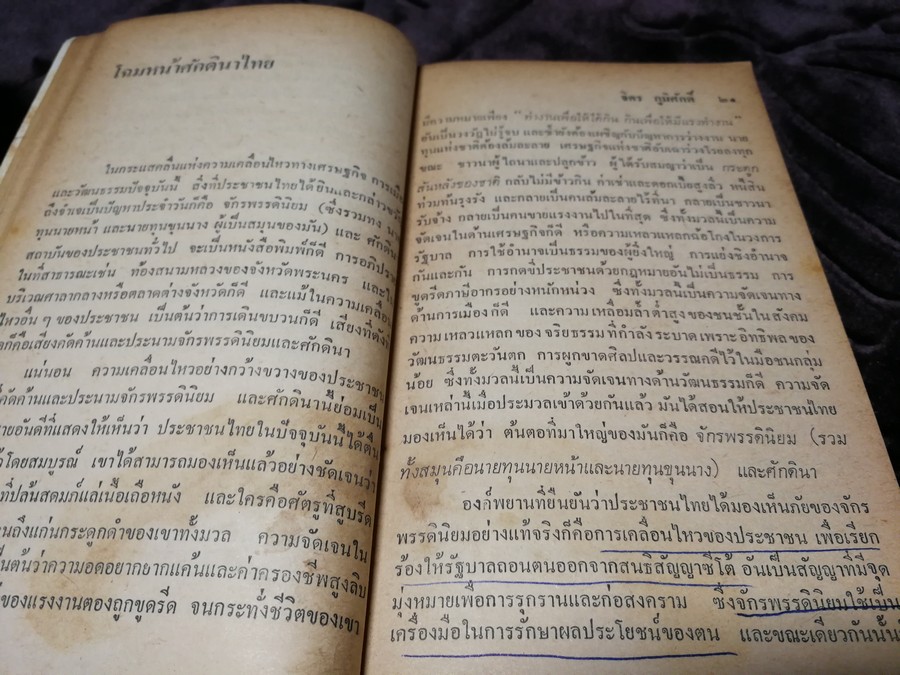 โฉมหน้าศักดินาไทย
ในกระแสคลื่นแห่งความเคลื่อนไหวทางเศรษฐกิจ การเมือง
และวัฒนธรรมปัจจุบันนี้ สิ่งที่ประชาชนไทยได้ยินและกล่าวขวัญ
ถึงจำเจเป็นปัญหาประจำวันก็คือ จักรพรรดินิยม (ซึ่งรวมทั้ง นาย
ทุนนายหน้า และนายทุนขุนนาง ผู้เป็นสมุนของมัน) และ ศักดินา
สถาบันของประชาชนทั่วไป จะเป็นหนังสือพิมพ์ก็ดี การอภิปราย
ในที่สาธารณะเช่น ท้องสนามหลวงของจังหวัดพระนคร และใน
บริเวณศาลากลางหรือตลาดต่างจังหวัดก็ดี และแม้ในความเคลื่อน
ไหวอื่น ๆ ของประชาชน เป็นต้นว่าการเดินขบวนก็ดี เสียงที่ดังที่
ก็คือเสียงคัดค้านและประนามจักรพรรดินิยมและศักดินา
แน่นอน ความเคลื่อนไหวอย่างกว้างขวางของประชาชน
คัดค้านและประนามจักรพรรดินิยม และศักดินานี้ย่อมเป็น
อันดีที่แสดงให้เห็นว่า ประชาชนไทยในปัจจุบันนี้ได้ตื่น
โดยสมบูรณ์ เขาได้สามารถมองเห็นแล้วอย่างชัดเจนว่า
ที่ปล้นสดมภ์แล่เนื้อเถือหนัง และใครคือศัตรูที่สูบรีด
ถึงแก่นกระดูกดำของเขาทั้งมวล ความจัดเจนใน
ต้นว่าความอดอยากยากแค้นและค่าครองชีพสูงลิบ
ของแรงงานต้องถูกขูดรีด จนกระทั่งชีวิตของเขา
จิตร ภูมิศักดิ์ ๒๑
มีความหมายเพียง "ทำงานเพื่อให้ได้กิน กินเพื่อให้มีแรงทำงาน"
อันเป็นวงจัญไม่รู้จบ และซ้ำยังต้องเผชิญกับปัญหาการว่างงาน นาย
ทุนแห่งชาติต้องล้มละลาย เศรษฐกิจแห่งชาติอับเฉาร่วงโรยลงทุก
ขณะ ชาวนาผู้ไถนาและปลูกข้าว ผู้ได้รับสมญาว่าเป็น กระดูก
สันหลังของชาติ กลับไม่มีข้าวกิน ค่าเช่าและดอกเบี้ยสูงลิ่ว หนี้สิน
ท่วมท้นรุงรัง และกลายเป็นคนล้มละลายไร้ที่นา กลายเป็นชาวนา
รับจ้าง กลายเป็นคนขายแรงงานไปในที่สุด ซึ่งทั้งมวลนี้เป็นความ
จัดเจนในด้านเศรษฐกิจก็ดี หรือความเหลวแหลกฉ้อโกงในวงการ
รัฐบาล การใช้อำนาจเป็นธรรมของผู้ยิ่งใหญ่ การแย่งชิงอำนาจ
กันและกัน การกดขี่ประชาชนด้วยกฎหมายอันไม่เป็นธรรม การ
ขูดรีดภาษีอากรอย่างหนักหน่วง ซึ่งทั้งมวลนี้เป็นความจัดเจนทาง
ด้านการเมืองก็ดี และความเหลื่อมล้ำต่ำสูงของชนชั้นในสังคม
ความเหลวแหลกของจริยธรรมที่กำลังระบาดเพราะอิทธิพลของ
วัฒนธรรมตะวันตก การผูกขาดศิลปและวรรณคดีไว้ในมือชนกลุ่ม
น้อย ซึ่งทั้งมวลนี้เป็นความจัดเจนทางด้านวัฒนธรรมก็ดี ความจัด
เจนเหล่านี้เมื่อประมวลเข้าด้วยกันแล้ว มันได้สอนให้ประชาชนไทย
มองเห็นได้ว่า ต้นตอที่มาใหญ่ของมันก็คือ จักรพรรดินิยม (รวม
ทั้งสมุนคือนายทุนนายหน้าและนายทุนขุนนาง) และศักดินา
องค์พยานที่ยืนยันว่าประชาชนไทยได้มองเห็นภัยของจักร
พรรดินิยมอย่างแท้จริงก็คือการเคลื่อนไหวของประชาชน เพื่อเรียก
ร้องให้รัฐบาลถอนตนออกจากสนธิสัญญาซีโต้ อันเป็นสัญญาที่มีจุด
มุ่งหมายเพื่อการรุกรานและก่อสงคราม ซึ่งจักรพรรดินิยมใช้เป็น
เครื่องมือในการรักษาผลประโยชน์ของตน และขณะเดียวกันนั้น